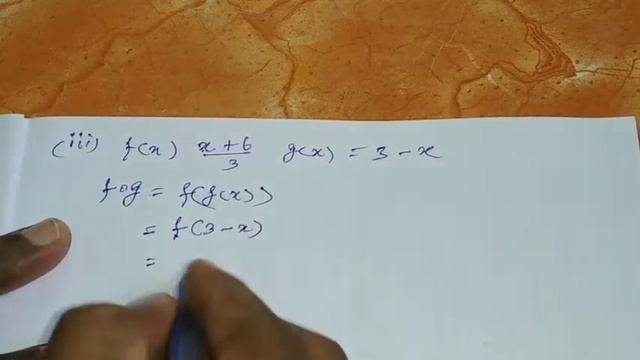 (iii) f(x) x+6/3 g(x) = 3 - x
fog = f(g(x))
= f(3 - x)
=